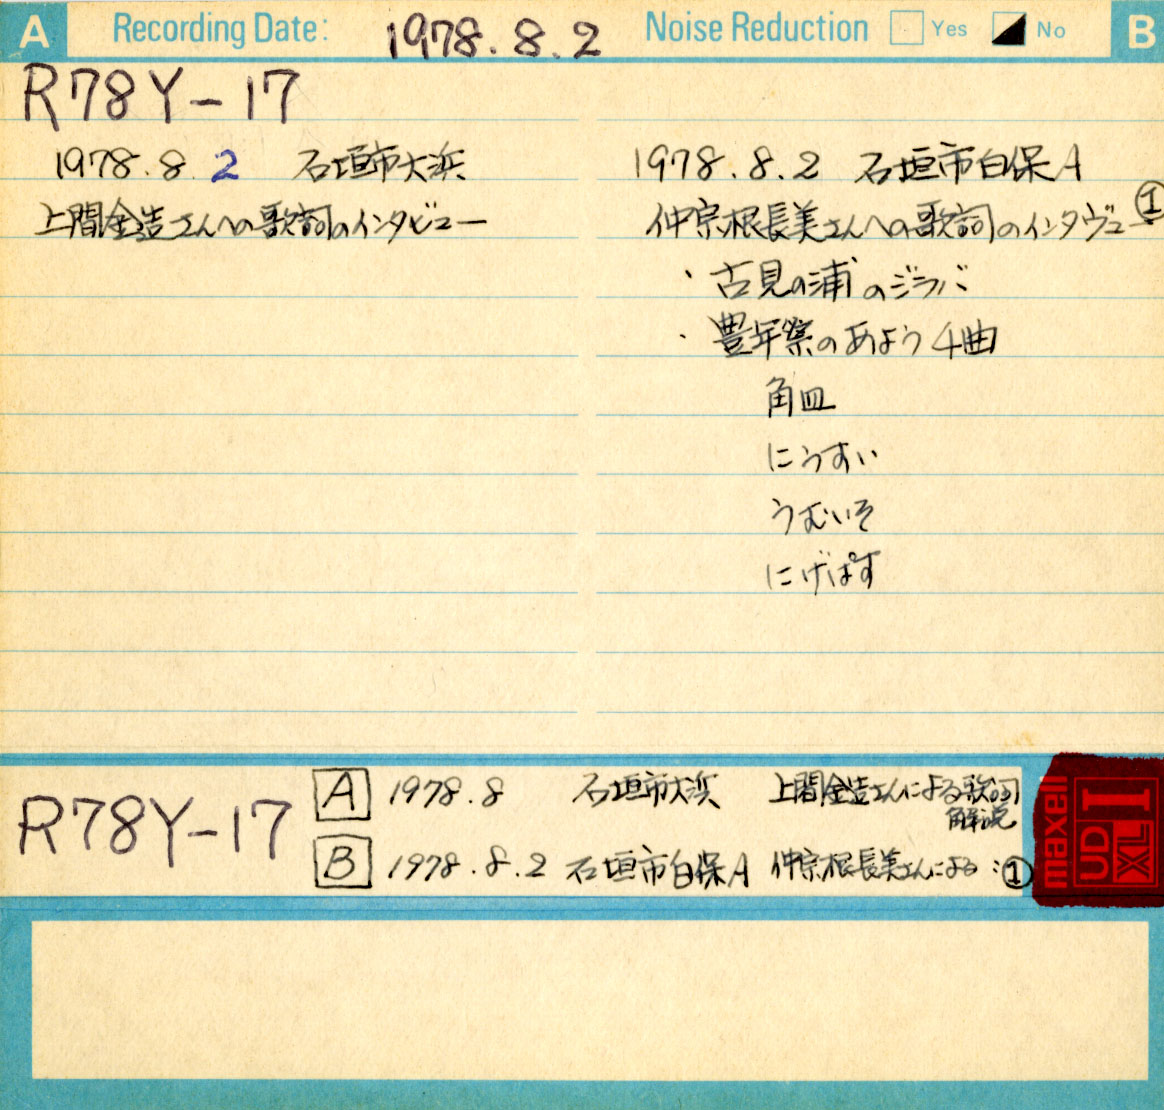 A Recording Date: 1978.8.2 Noise Reduction Yes No B
R78Y-17
1978.8.2 石垣市大浜
上間金造さんへの歌詞のインタビュー
1978.8.2 石垣市白保A
仲宗根長美さんへの歌詞のインタヴュー①
・古見の浦のジラバ
・豊年祭のあよう 4曲
角皿
にうすい
うむいそ
にげぱす
R78Y-17
A 1978.8 石垣市大浜 上間金造さんによる歌詞
解説
B 1978.8.2 石垣市白保A 仲宗根長美さんによる:①
maxell UD XL I